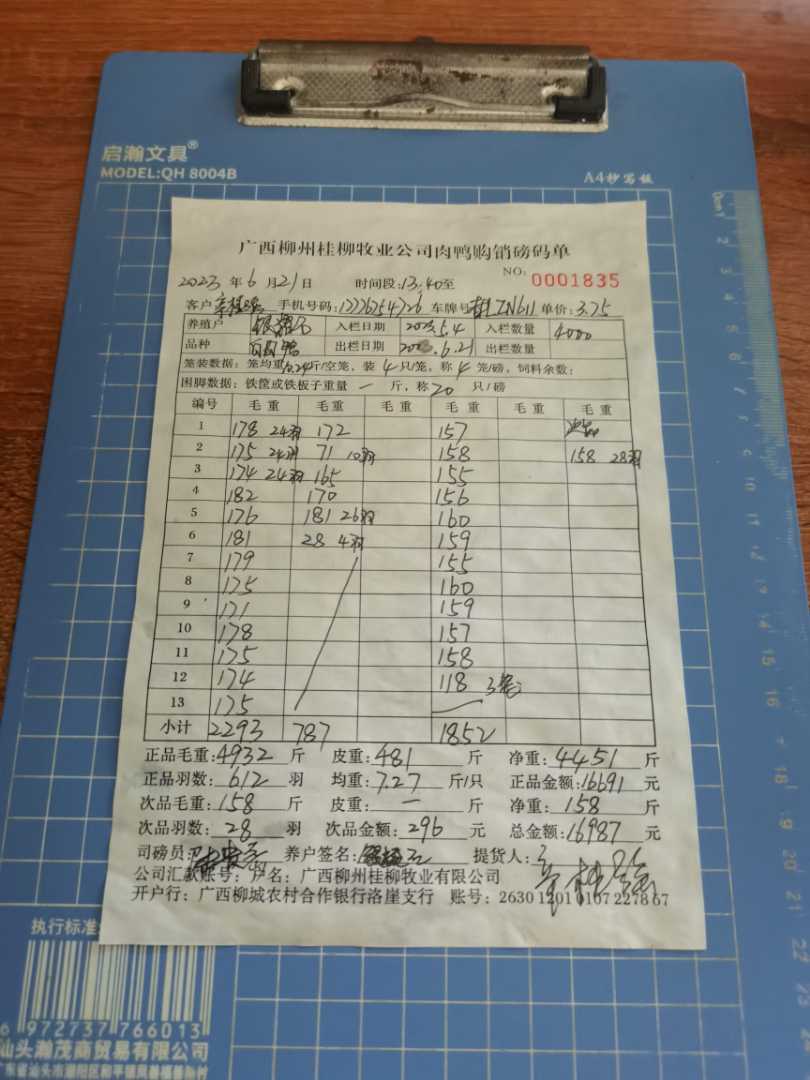 启瀚文具®
MODEL:QH 8004B
A4抄写板
广西柳州桂柳牧业公司肉鸭购销磅码单
2023 年 6 月 21 日 时间段:13:40至 NO: 0001835
客户 手机号码: 车牌号 单价:3.75
养殖户 入栏日期 2023.5.4 入栏数量 4000
品种 出栏日期 2023.6.21 出栏数量
笼装数据: 笼均重 斤/空笼, 装 4 只/笼, 称 4 笼/磅, 饲料余数:
困脚数据: 铁筐或铁板子重量 一 斤, 称 20 只/磅
编号 毛重 毛重 毛重 毛重 毛重 毛重
1 178 24羽 172 157 次品
2 175 24羽 71 10羽 158 158 28羽
3 174 24羽 165 155
4 182 170 156
5 176 181 26羽 160
6 181 28 4羽 159
7 179 155
8 175 160
9 171 159
10 178 157
11 175 158
12 174 118 3笼
13 175
小计 2293 787 1852
正品毛重:4932 斤 皮重:481 斤 净重:4451 斤
正品羽数:612 羽 均重:7.27 斤/只 正品金额:16691 元
次品毛重:158 斤 皮重:一 斤 净重:158 斤
次品羽数:28 羽 次品金额:296 元 总金额:16987 元
司磅员: 养户签名: 提货人:
公司汇款账号: 户名: 广西柳州桂柳牧业有限公司
开户行: 广西柳城农村合作银行洛崖支行 账号: 2630 1201 0107 2278 67
执行标准:
6 972737 766013
汕头瀚茂商贸易有限公司